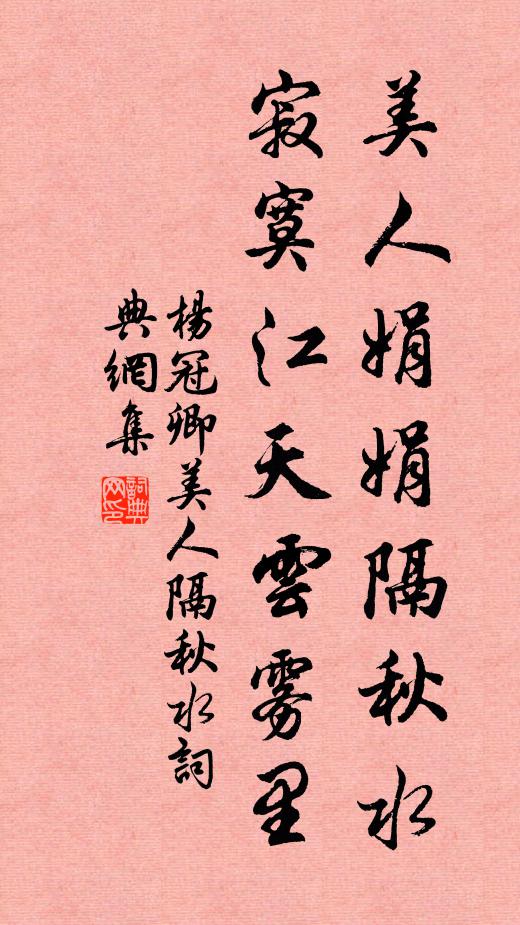 美人娟娟隔秋水
寂寞江天雲雾里
楊冠卿美人隔秋水詞
典網集
詞典网印